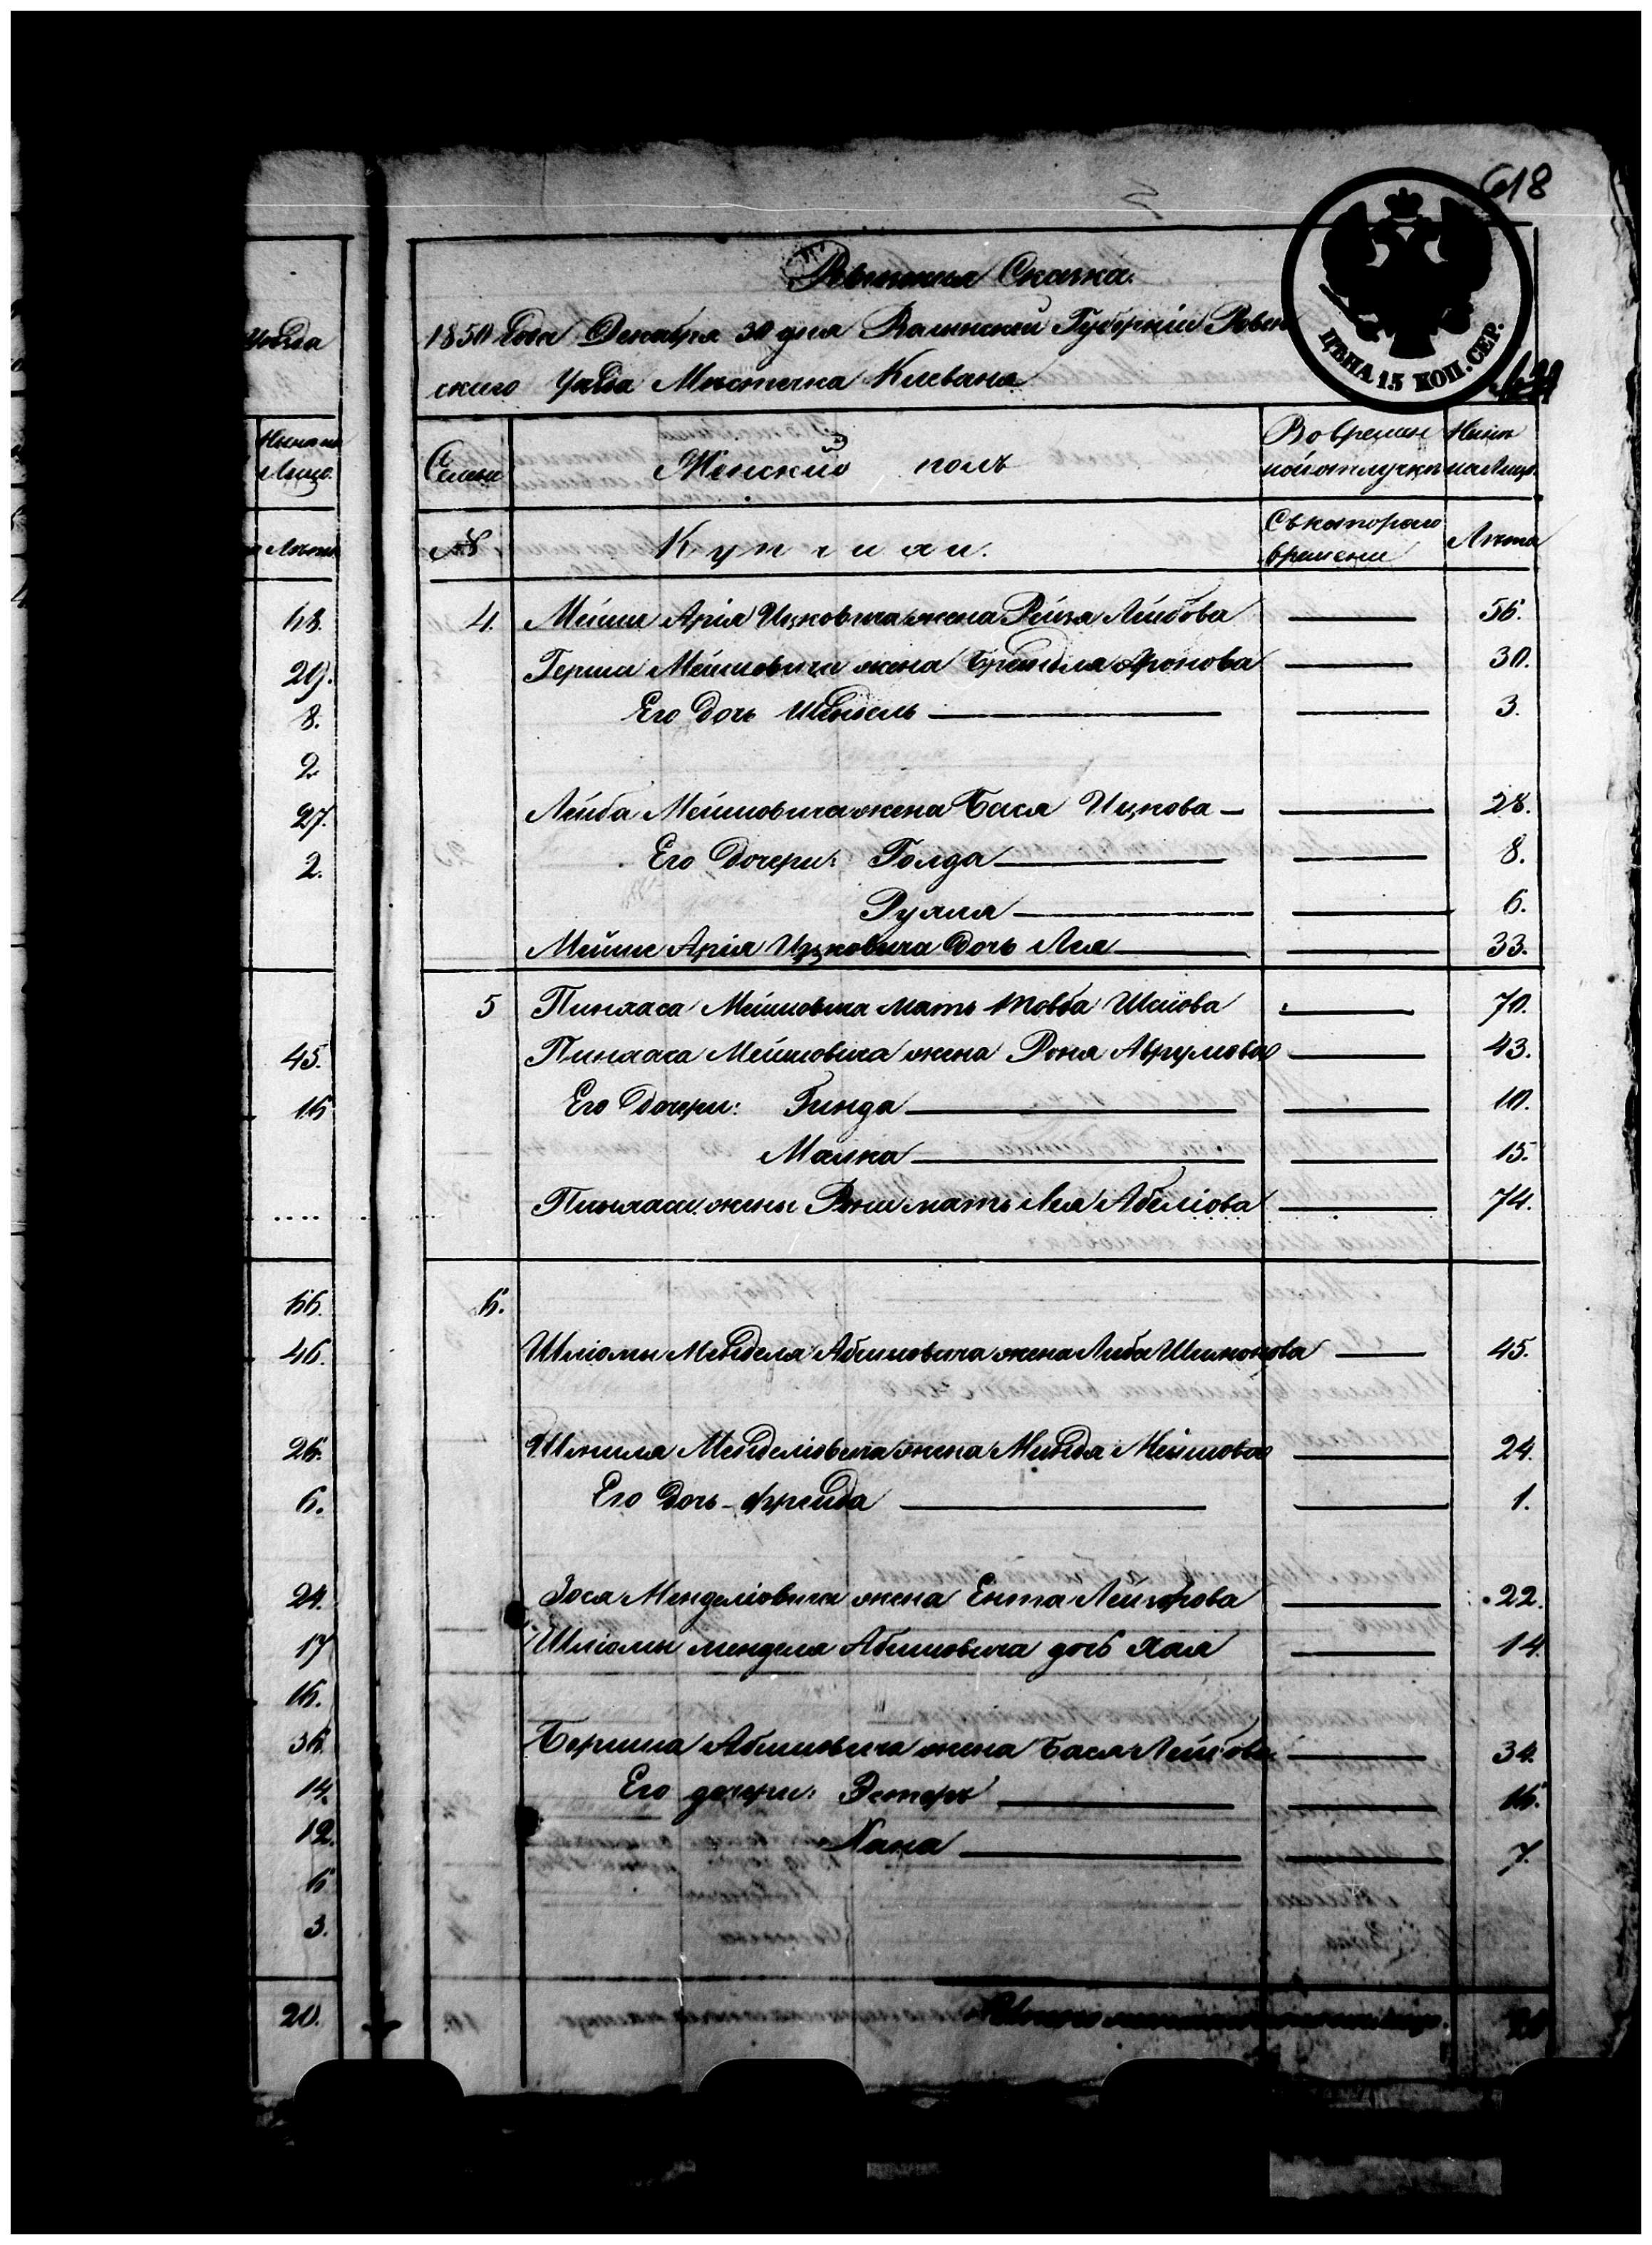 618
Ревижская Сказка.
1850 года Декабря 30 дня Волынской Губерніи Ровен
скаго Уѣзда Мѣстечка Клеваня
ЦѢНА 15 КОП. СЕР.
уѣзда
Ныне на
Лицо.
Лѣта
Семьи
Женской полъ
Во времен
ной отлучкѣ
Нынѣ
на Лицо.
№
Купчихи.
Съ котораго
времени
Лѣта
48. 4. Мейши Арія Ицковича жена Рейзя Лейбова 56.
29. Герши Мейшовича жена Брейндля Аронова 30.
8. Его дочь Шейндель 3.
2.
27. Лейба Мейшовича жена Бася Ицкова 28.
2. Его дочери: Голда 8.
Рухля 6.
Мейше Арія Ицковича дочь Лея 33.
5 Пинхаса Мейшовича мать Товба 70.
45. Пинхаса Мейшовича жена Роня Аврумова 43.
16 Его дочери: Гинда 10.
Малка 15.
Пинхаса жены Рони мать Лея Абеліова 74.
66. 6.
46. Шліомы Менделя Абишовича жена Либа Шимонова 45.
26. Шмиля Менделіовича жена Мейшова 24.
6. Его дочь Фрейда 1.
24. Зося Менделіовича жена Ента Лейзерова 22.
17 Шліомы менделя Абишовича дочь Хая 14.
16.
36. Бериша Абишовича жена Бася Лейбова 34.
14. Его дочери: Эстеръ 16.
12. Хана 7.
6
3.
20. 20